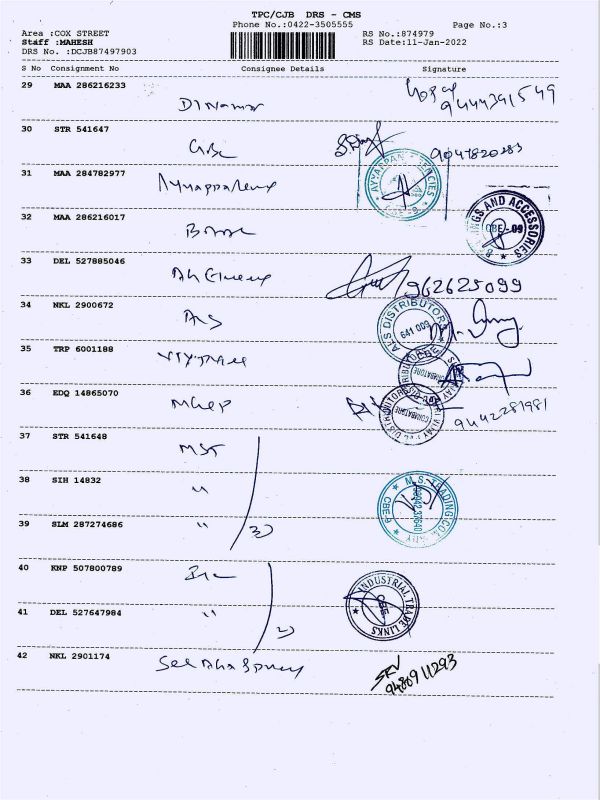 TPC/CJB DRS - CMS
Phone No.:0422-3505555 Page No.:3
Area :COX STREET RS No.:874979
Staff :MAHESH RS Date:11-Jan-2022
DRS No. :DCJB87497903
S No Consignment No Consignee Details Signature
29 MAA 286216233
9444391549
30 STR 541647
9047820283
31 MAA 284782977
AYYAPPAN AGENCIES
CBE-9
32 MAA 286216017
BEARINGS AND ACCESSORIES
CBE-09
33 DEL 527885046
962625099
34 NKL 2900672
ALS
ALS DISTRIBUTORS
641 009
35 TRP 6001188
COIMBATORE
36 EDQ 14865070
9442281981
SRI VIJAY DISTRIBUTORS
COIMBATORE
37 STR 541648
MST
38 SIH 14832
"
M.S. TRADING COMPANY
CBE-9
39 SLM 287274686
"
3)
40 KNP 507800789
INDUSTRIAL TRADE LINKS
CBE
41 DEL 527647984
"
2)
42 NKL 2901174
SRV
9486911293